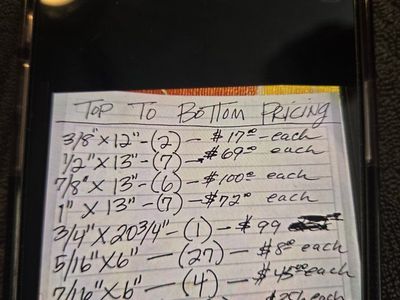 Top To Bottom Pricing
3/8" x 12" - (2) - $17.00 - each
1/2" x 13" - (7) - $69.00 each
7/8" x 13" - (6) - $100.00 each
1" x 13" - (7) - $72.00 each
3/4" x 20 3/4" - (1) - $99
5/16" x 6" - (27) - $8.00 each
7/16" x 6" - (4) - $45.00 each
each